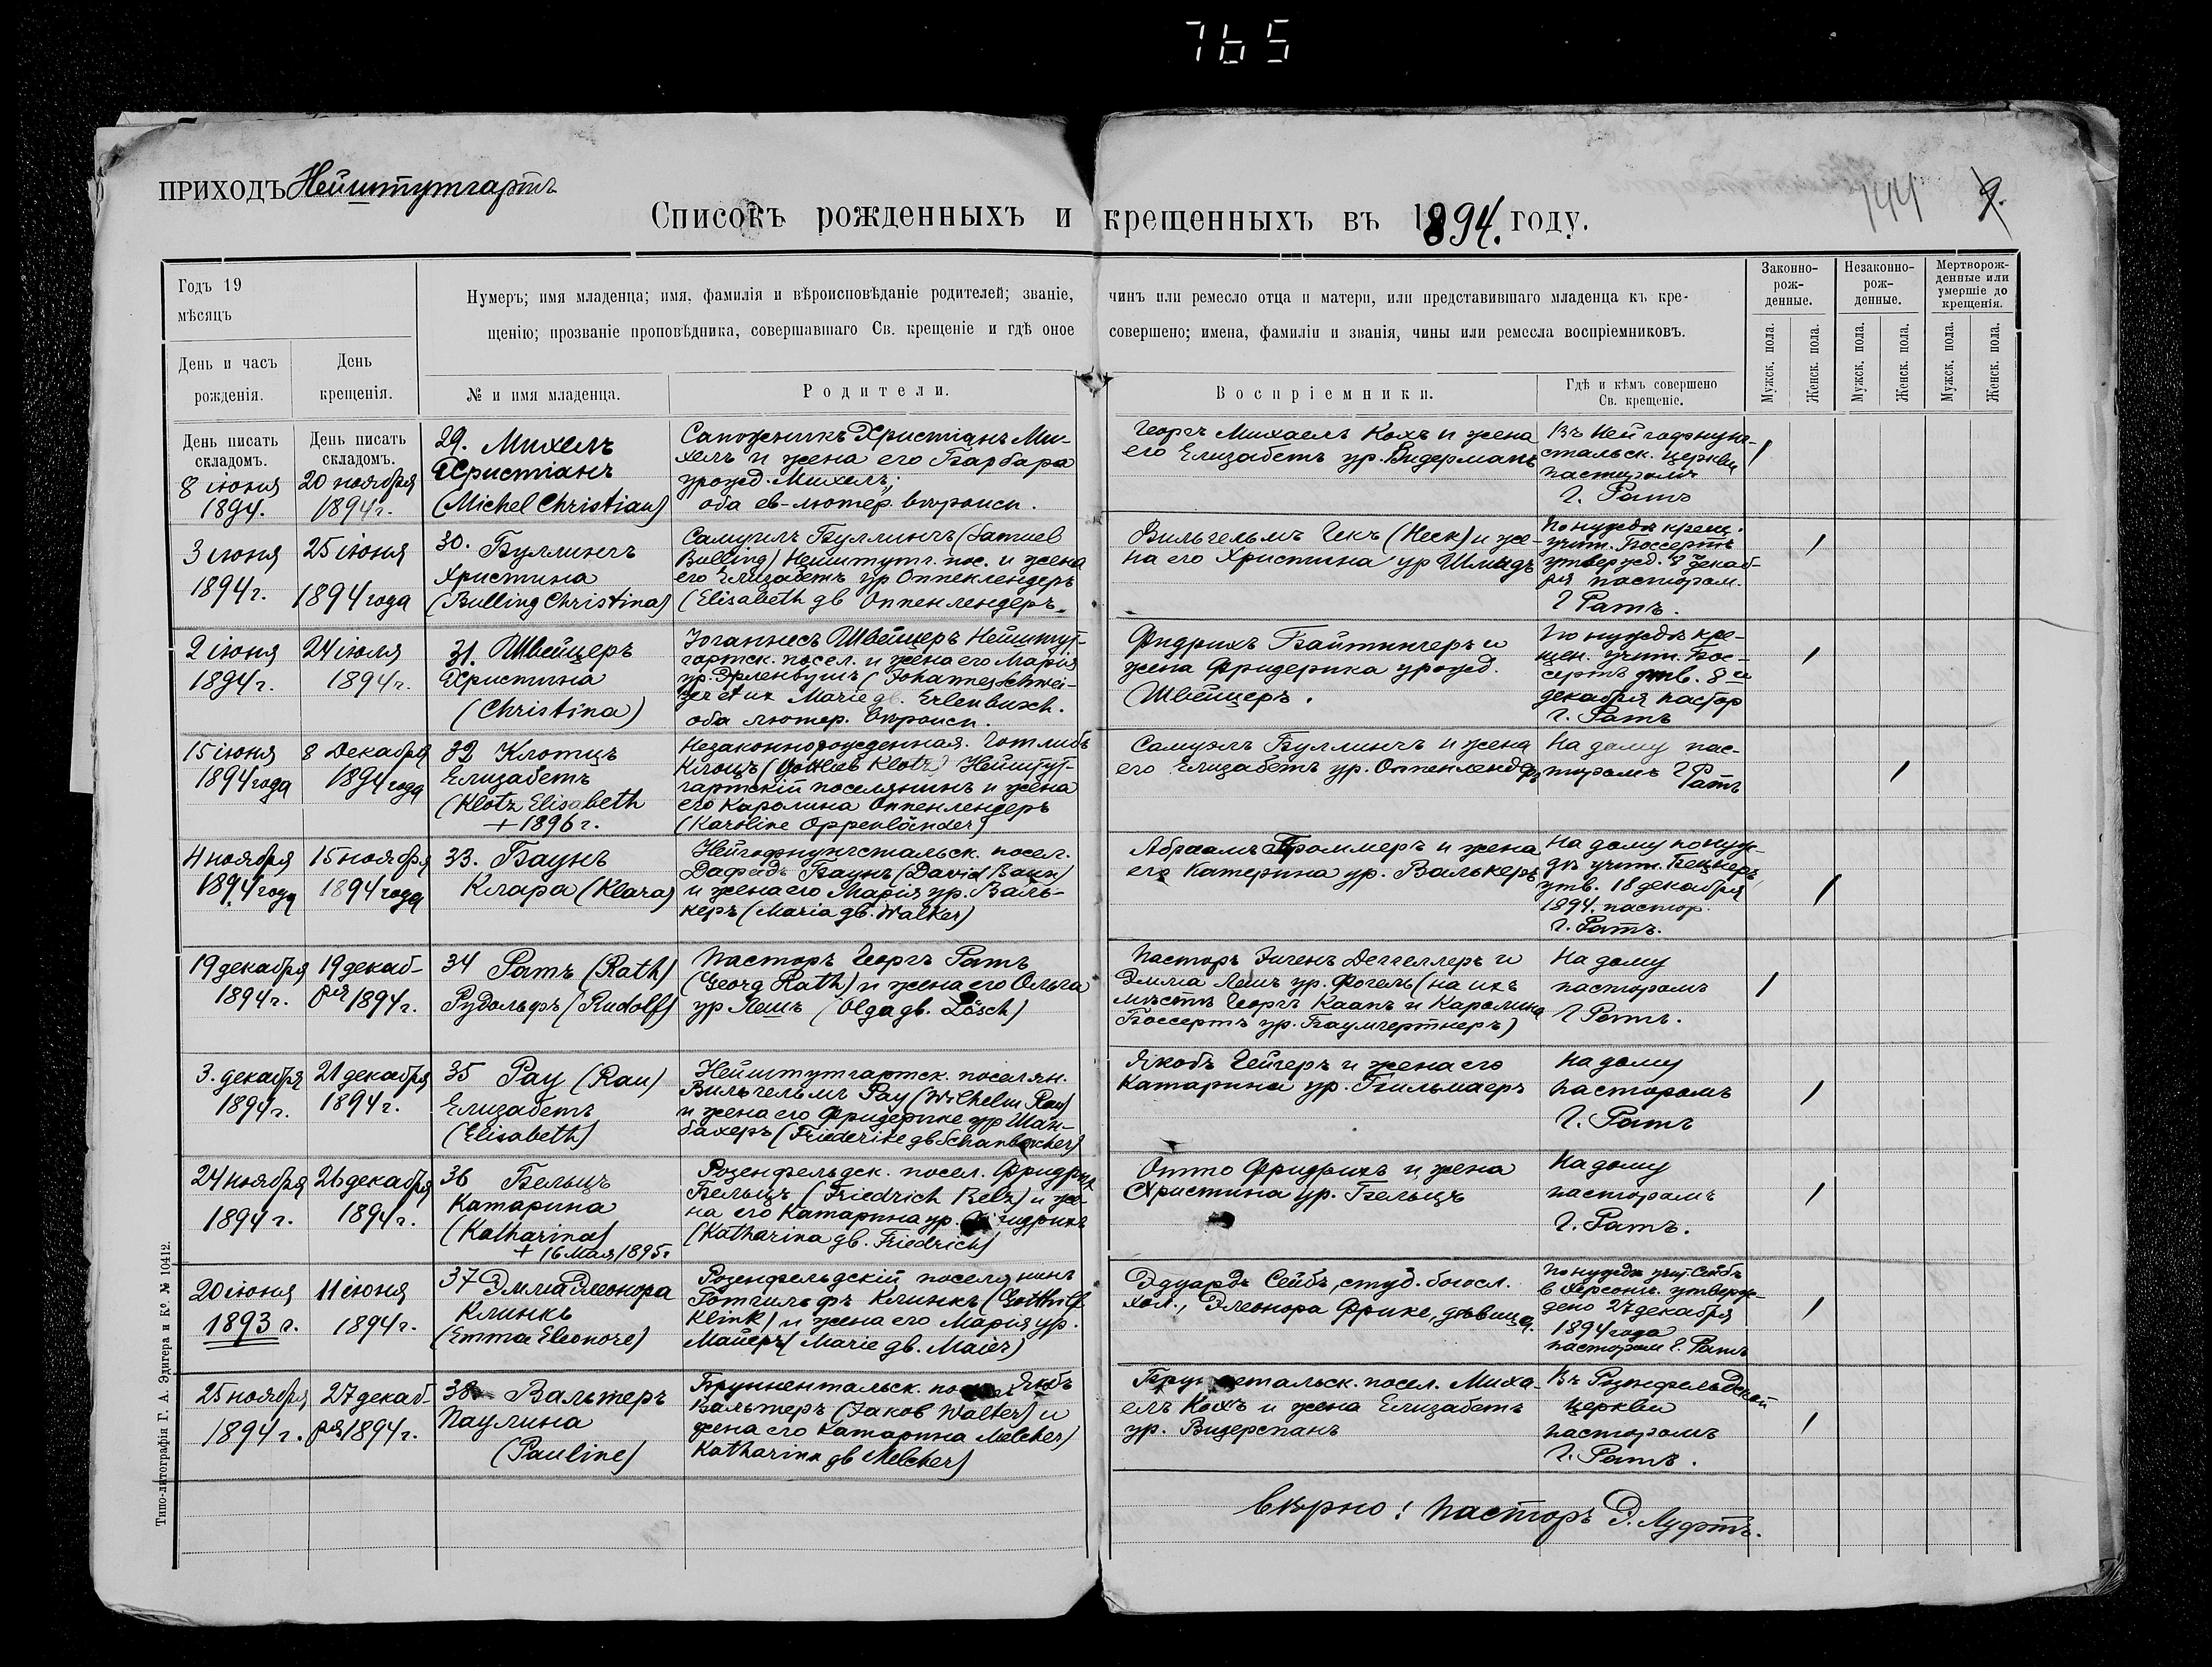 765
ПРИХОДЪ Нейштутгартъ
144 9.
Списокъ рожденныхъ и крещенныхъ въ 1894. году.
Годъ 19
мѣсяцъ
День и часъ
рожденія.
День
крещенія.
Нумеръ; имя младенца; имя, фамилія и вѣроисповѣданіе родителей; званіе, чинъ или ремесло отца и матери, или представившаго младенца къ кре-
щенію; прозваніе проповѣдника, совершавшаго Св. крещеніе и гдѣ оное совершено; имена, фамиліи и званія, чины или ремесла воспріемниковъ.
№ и имя младенца.
Родители.
Воспріемники.
Гдѣ и кѣмъ совершено
Св. крещеніе.
Законно-
рож-
денные.
Незаконно-
рож-
денные.
Мертворож-
денные или
умершіе до
крещенія.
Мужск. пола.
Женск. пола.
Мужск. пола.
Женск. пола.
Мужск. пола.
Женск. пола.
День писать
складомъ.
8 іюня
1894.
День писать
складомъ.
20 ноября
1894 г.
29. Михелъ
Христіанъ
(Michel Christian)
Сапожникъ Христіанъ Ми-
хелъ и жена его Барбара
урожд. Михелъ;
оба ев-лютер. вѣроисп.
Георгъ Михаелъ Кохъ и жена
его Елизабетъ ур. Видерманъ
Въ Нейгофнунг-
стальск. церкви
пасторомъ
Г. Ратъ
/
3 іюня
1894 г.
25 іюня
1894 года
30. Буллингъ
Христина
(Bulling Christina)
Самуилъ Буллингъ (Samuel
Bulling) Нейштутг. пос. и жена
его Елизабетъ ур Оппенлендеръ
(Elisabeth gb Оппенлендеръ.
Вильгельмъ Гекъ (Heck) и же-
на его Христина ур Шмидъ
По нуждѣ крещ.
учит. Боссертъ
утвержд. 8 декаб-
ря пасторам.
Г Ратъ.
/
2 іюня
1894 г.
24 іюля
1894 г.
31. Швейцеръ
Христина
(Christina)
Іоганнесъ Швейцеръ Нейштут-
гартск. посел. и жена его Марія
ур. Эрленбушъ (Johannes Schwei-
zer et ux Marie gb. Erlenbusch.
оба лютер. вѣроисп.
Фидрихъ Байтингеръ и
жена Фридерика урожд.
Швейцеръ.
По нуждѣ кре-
щен. учит. Бос-
сертъ утв. 8 го
декабря пастор
Г. Ратъ
/
15 іюня
1894 года
8 Декабря
1894 года
32 Клотцъ
Елизабетъ
(Klotz Elisabeth
+ 1896 г.
Незаконнорожденная. Готлибъ
Клоцъ (Gottlieb Klotz) Нейштут-
гартскій поселянинъ и жена
его Каролина Оппенлендеръ
(Karoline Oppenländer)
Самуэлъ Буллингъ и жена
его Елизабетъ ур. Оппенлендеръ
На дому пас-
торомъ Г
Ратъ
/
4 ноября
1894 года
15 ноября
1894 года
33. Баунъ
Клара (Klara)
Нейгофнунгстальск. посел.
Дафидъ Баунъ (David Baun)
и жена его Марія ур. Валь-
керъ (Maria gb. Walker)
Абраамъ Проммеръ и жена
его Катерина ур. Валькеръ
На дому по нуж-
дѣ учит. Бецнеръ
утв. 18 декабря
1894. пастор.
Г. Ратъ.
/
19 декабря
1894 г.
19 декаб-
ря 1894 г.
34 Ратъ (Rath)
Рудольфъ (Rudolf)
Пасторъ Георгъ Ратъ
(Georg Rath) и жена его Ольга
ур Лешъ (Olga gb. Lösch)
Пасторъ Эигенъ Деггеллеръ и
Эмма Лешъ ур. Фогель (на ихъ
мѣстѣ Георгъ Каапъ и Каролина
Боссертъ ур. Баумгертнеръ)
На дому
пасторомъ
Г Ратъ.
/
3. декабря
1894 г.
21 декабря
1894 г.
35 Рау (Rau)
Елизабетъ
(Elisabeth)
Нейштутгартск. поселян.
Вильгельмъ Рау (Wilhelm Rau)
и жена его Фридерике ур Шан-
бахеръ (Friederike gb Schanbacher)
Якобъ Гейгеръ и жена его
Катарина ур. Бильмаеръ
На дому
пасторомъ
Г. Ратъ
/
24 ноября
1894 г.
26 декабря
1894 г.
36 Бельцъ
Катарина
(Katharina)
+ 16 Мая 1895 г
Розенфельдск. посел. Фридрих
Бельцъ (Friedrich Belz) и же-
на его Катарина ур. Фридрихъ
(Katharina gb. Friedrich)
Отто Фридрихъ и жена
Христина ур. Бельцъ
На дому
пасторомъ
Г. Ратъ.
/
20 іюня
1893 г.
11 іюня
1894 г.
37 Эмма Элеонора
Клинкъ
(Emma Eleonore)
Розенфельдскій поселянинъ
Готгильфъ Клинкъ (Gotthilf
Klink) и жена его Марія ур.
Майеръ (Marie gb. Maier)
Эдуардъ Сейбъ, студ. богосл.
хол., Элеонора Фрике, дѣвица.
По нуждѣ учит. Сейбъ
в Херсонъ. утверж-
дено 27 декабря
1894 года
пастором Г. Ратъ
/
25 ноября
1894 г.
27 декаб-
ря 1894 г.
38 Вальтеръ
Паулина
(Pauline)
Брунненталъск. посел Якобъ
Вальтеръ (Jakob Walter) и
жена его Катарина Melcher)
Katharina gb Melcher)
Брунентальск. посел. Миха-
елъ Кохъ и жена Елизабетъ
ур. Видерспанъ
Въ Розенфельдской
церкви
пасторомъ
Г. Ратъ.
/
Вѣрно! Пасторъ Э. Луфтъ.
Типо-литографія Г. А. Эдигера и Кº. № 10412.